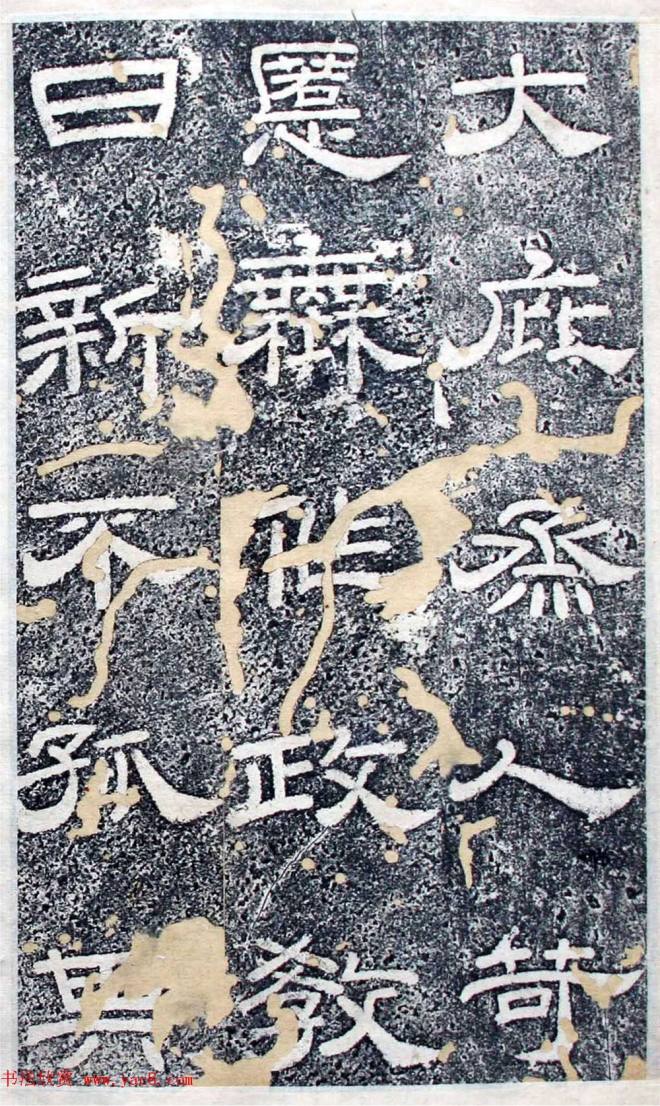 大庇烝人苛
慝橆作政教
日新不孤其
书法欣赏 www.yac8.com